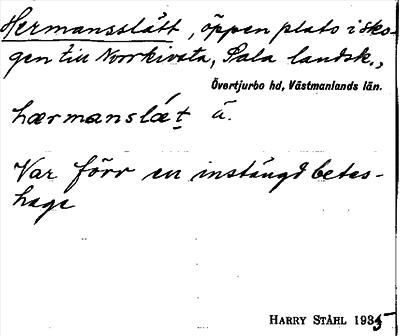 Hermansslätt, öppen plats i sko-
gen till Norrkivsta, Sala landsk.,
Övertjurbo hd, Västmanlands län.
hærmanslǽt ä.
Var förr en instängd betes-
hage
HARRY STÅHL 1935